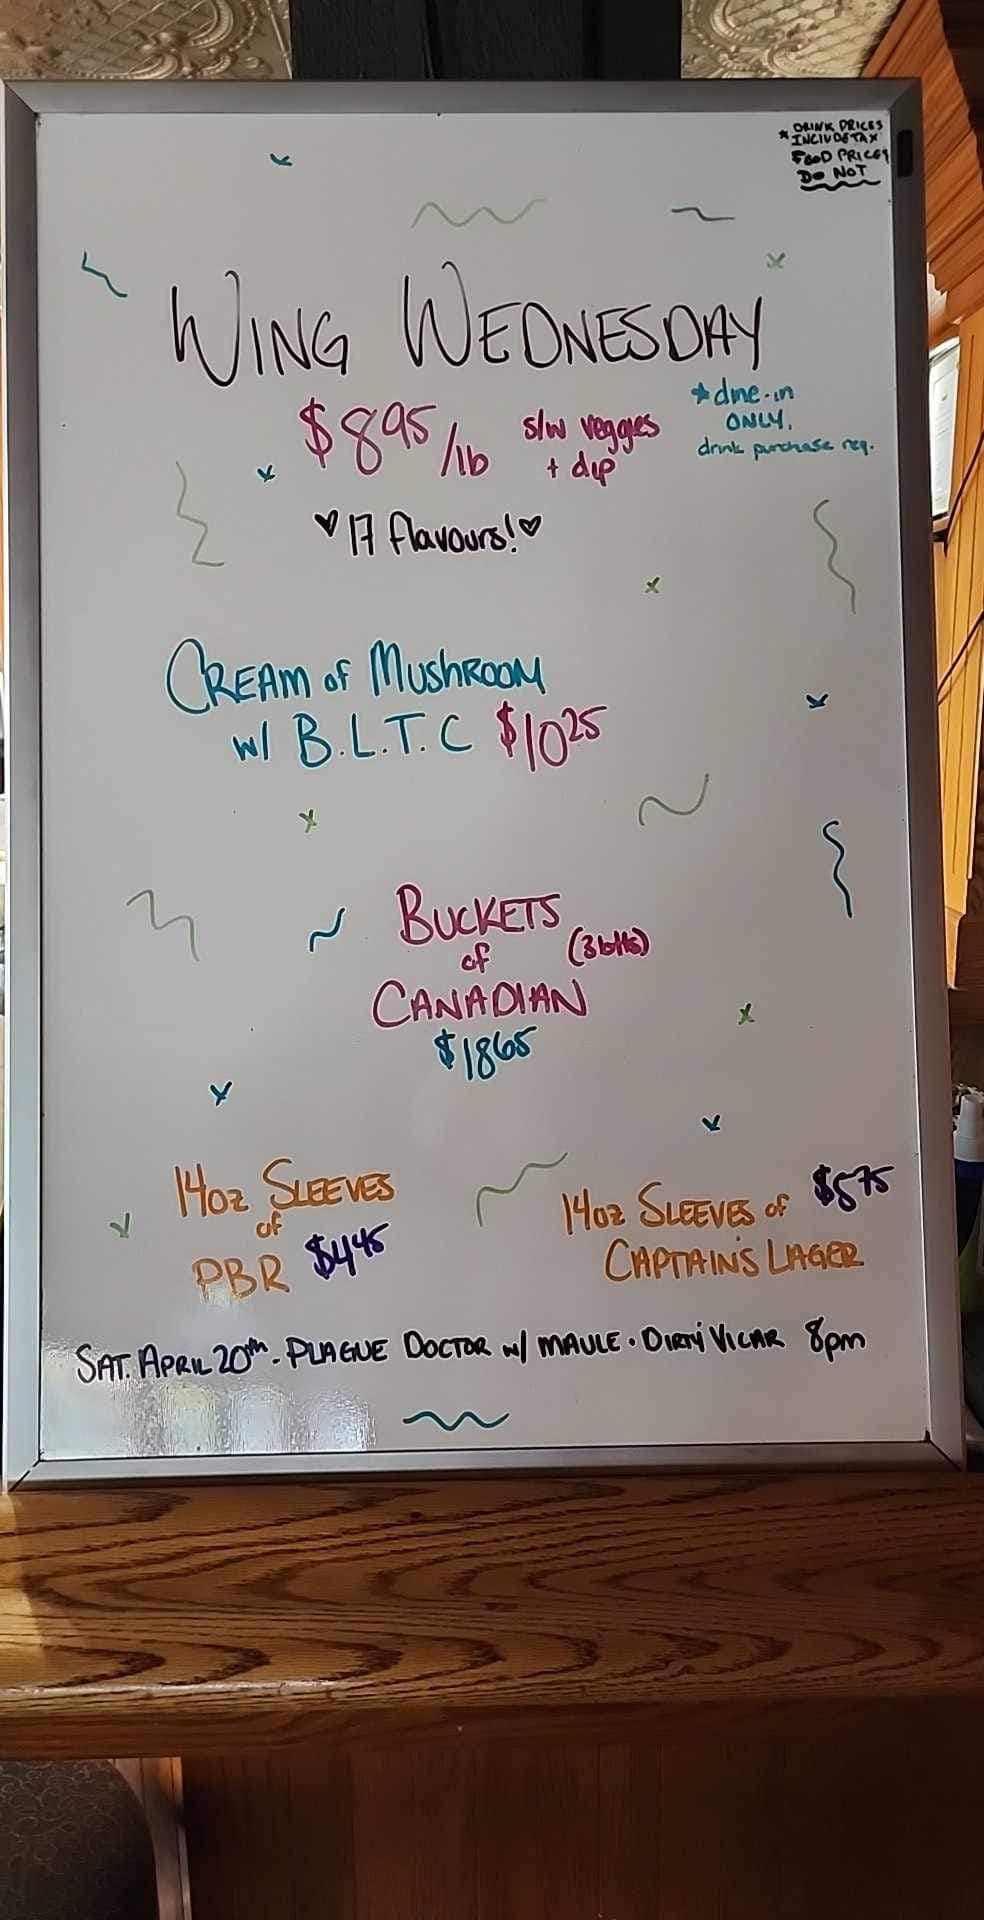 * DRINK PRICES
INCLUDE TAX
FOOD PRICES
DO NOT
WING WEDNESDAY
$8.95/lb s/w veggies
+ dip
* dine-in
ONLY.
drink purchase req.
♥ 17 flavours! ♥
CREAM of MUSHROOM
w/ B.L.T.C $10.25
BUCKETS
of (3 btls)
CANADIAN
$18.65
14oz SLEEVES
of
PBR $4.45
14oz SLEEVES of $5.75
CAPTAIN'S LAGER
SAT. APRIL 20th - PLAGUE DOCTOR w/ MAULE • DIRTY VICAR 8pm